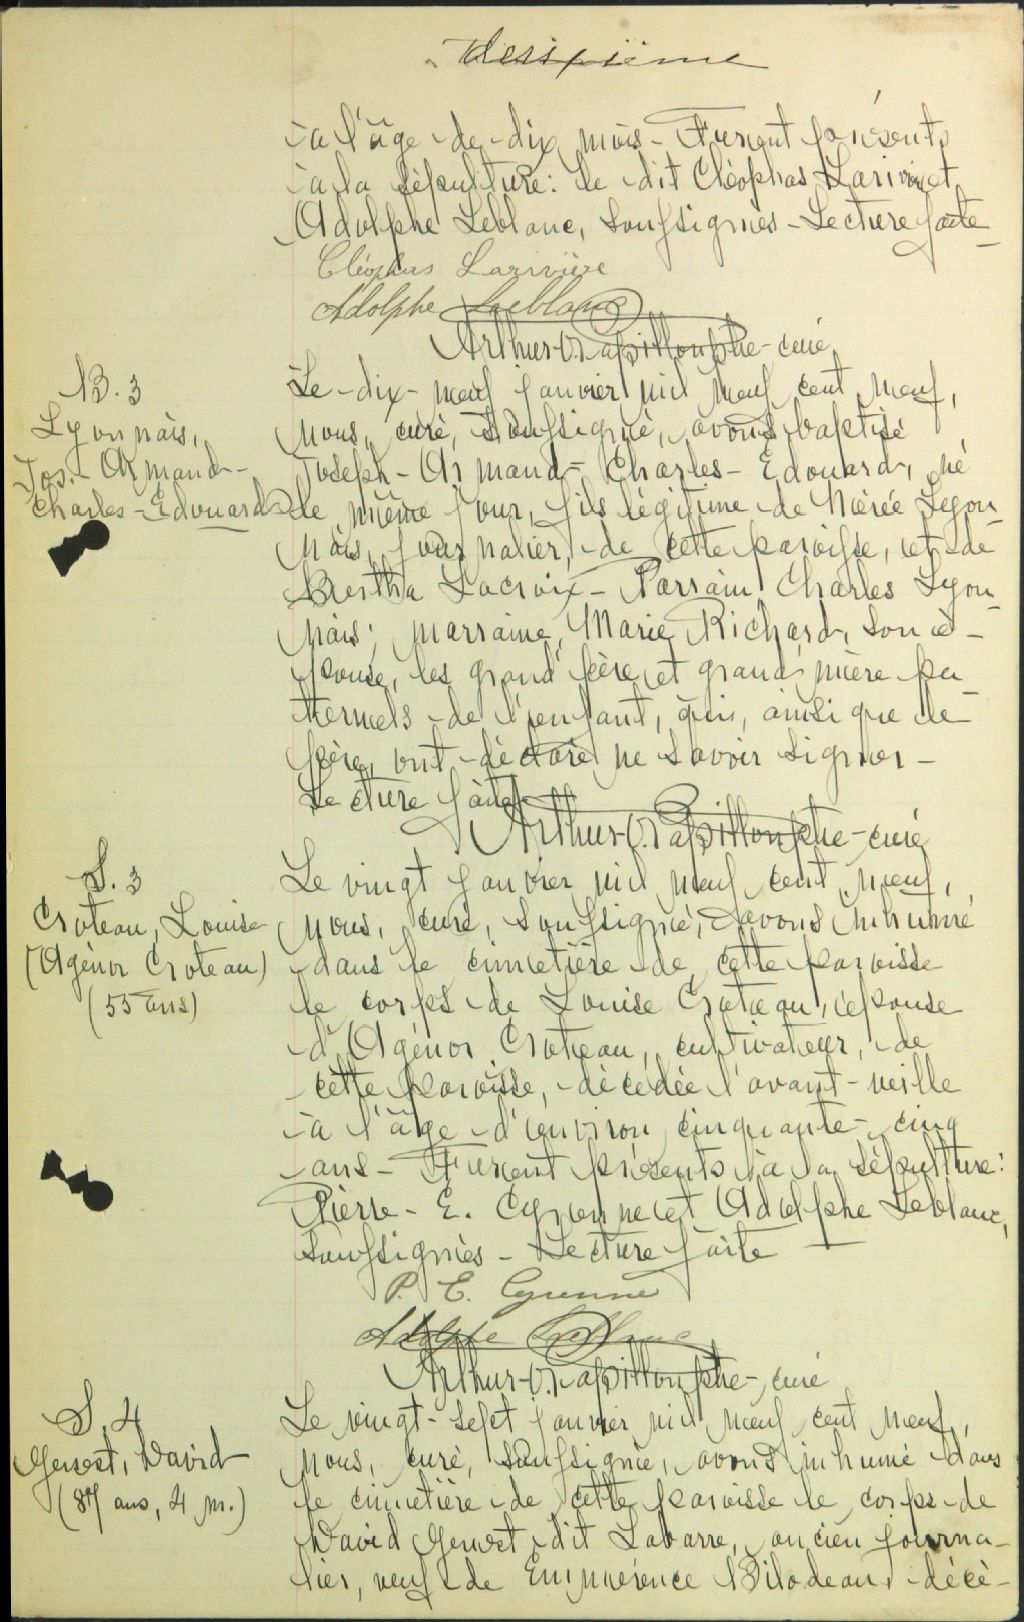 deuxième
à l'âge de dix mois - Furent présents
à la sépulture: le dit Cléophas Larivière et
Adolphe Leblanc, soussignés - Lecture faite -
Cléophas Larivière
Adolphe Leblanc
Arthur O. Papillon ptre - curé
B. 3
Lyonnais,
Jos. - Armand -
Charles - Edouard
Le dix - neuf janvier mil neuf cent neuf,
nous, curé, soussigné, avons baptisé
Joseph - Armand - Charles - Edouard, né
le même jour, fils légitime de Nérée Lyon-
nais, journalier, de cette paroisse, et de
Bertha Lacroix - Parrain Charles Lyon-
nais; marraine, Marie Richard, son é-
pouse, les grand père et grand'mère pa-
ternels de l'enfant, qui, ainsi que le
père, ont déclaré ne savoir signer -
Lecture faite -
Arthur O. Papillon ptre - curé
S. 3
Croteau, Louise
(Agénor Croteau)
(55 ans)
Le vingt janvier mil neuf cent neuf,
nous, curé, soussigné, avons inhumé
dans le cimetière de cette paroisse
le corps de Louise Croteau, épouse
d'Agénor Croteau, cultivateur, de
cette paroisse, décédée l'avant - veille
à l'âge d'environ cinquante - cinq
ans - Furent présents à la sépulture:
Pierre - E. Cyrenne et Adolphe Leblanc,
soussignés - Lecture faite -
P. E. Cyrenne
Adolphe Leblanc
Arthur O. Papillon ptre - curé
S. 4
Genest, David
(87 ans, 4 m.)
Le vingt - sept janvier mil neuf cent neuf,
nous, curé, soussigné, avons inhumé dans
le cimetière de cette paroisse le corps de
David Genest dit Labarre, ancien journa-
lier, veuf de Emmérence Bilodeau, décé-